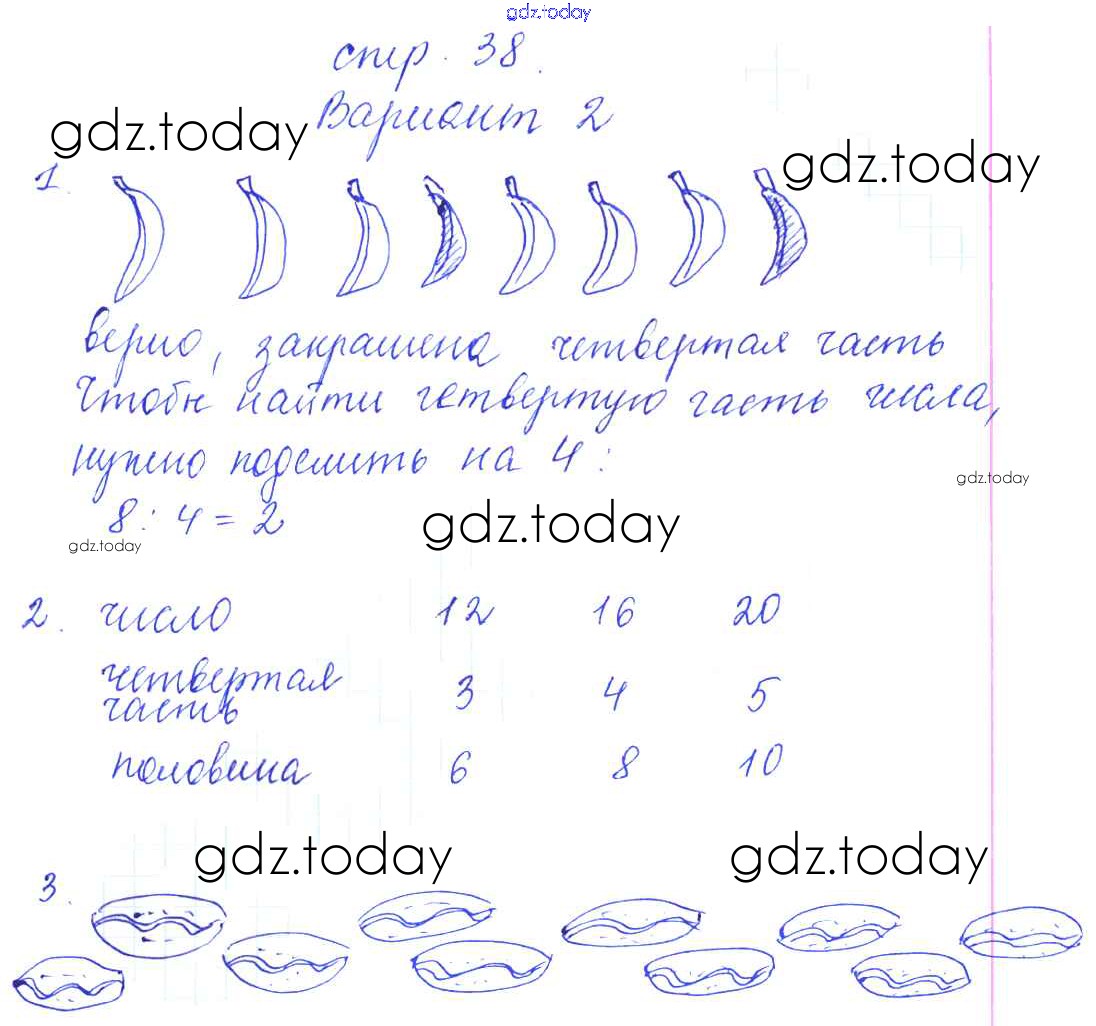 gdz.today
стр. 38.
Вариант 2
gdz.today
gdz.today
1.
верно, закрашена четвертая часть
Чтобы найти четвертую часть числа,
нужно поделить на 4:
gdz.today
8 : 4 = 2
gdz.today
gdz.today
2. число 12 16 20
четвертая
часть 3 4 5
половина 6 8 10
gdz.today gdz.today
3.